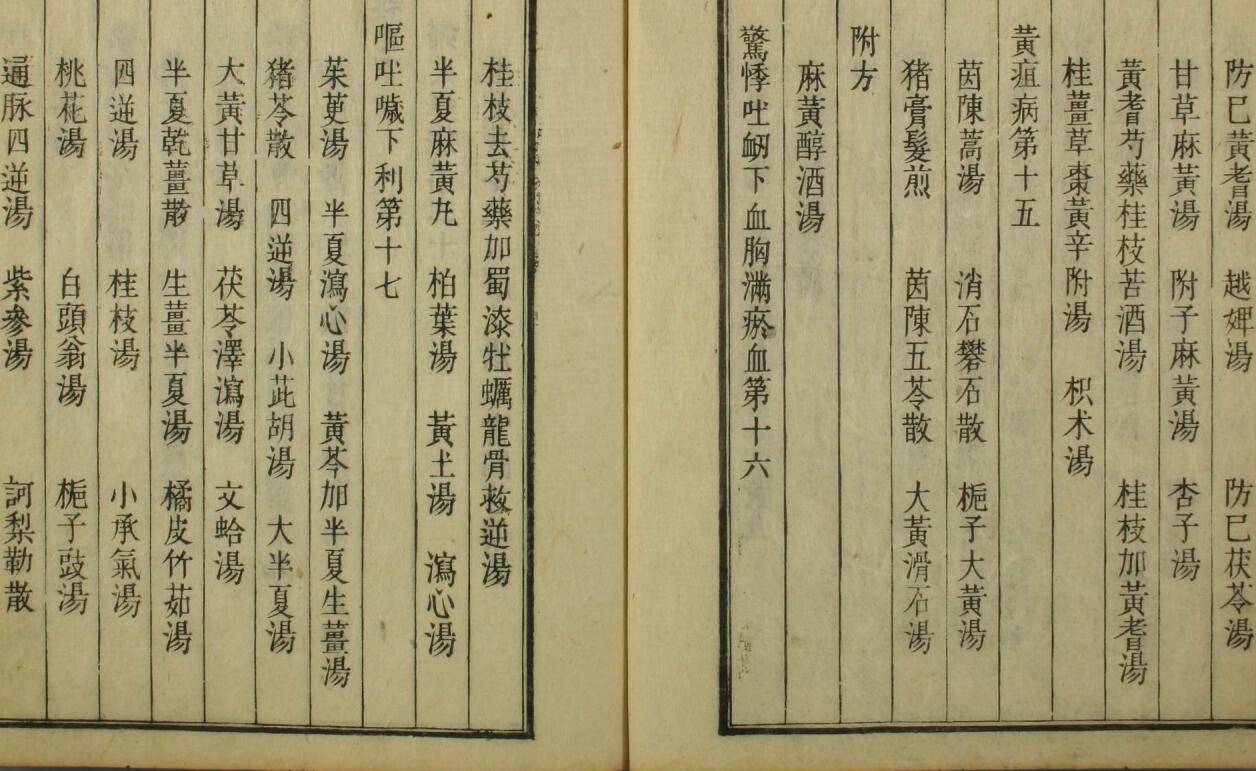 防已黃耆湯　越婢湯　防已茯苓湯
甘草麻黃湯　附子麻黃湯　杏子湯
黃耆芍藥桂枝苦酒湯　桂枝加黃耆湯
桂薑草棗黃辛附湯　枳朮湯
黃疸病第十五
茵陳蒿湯　消石礬石散　梔子大黃湯
猪膏髮煎　茵陳五苓散　大黃滑石湯
附方
麻黃醇酒湯
驚悸吐衂下血胸滿瘀血第十六
桂枝去芍藥加蜀漆牡蠣龍骨救逆湯
半夏麻黃丸　柏葉湯　黃土湯　瀉心湯
嘔吐噦下利第十七
茱萸湯　半夏瀉心湯　黃芩加半夏生薑湯
猪苓散　四逆湯　小茈胡湯　大半夏湯
大黃甘草湯　茯苓澤瀉湯　文蛤湯
半夏乾薑散　生薑半夏湯　橘皮竹茹湯
四逆湯　桂枝湯　小承氣湯
桃花湯　白頭翁湯　梔子豉湯
通脉四逆湯　紫參湯　訶梨勒散